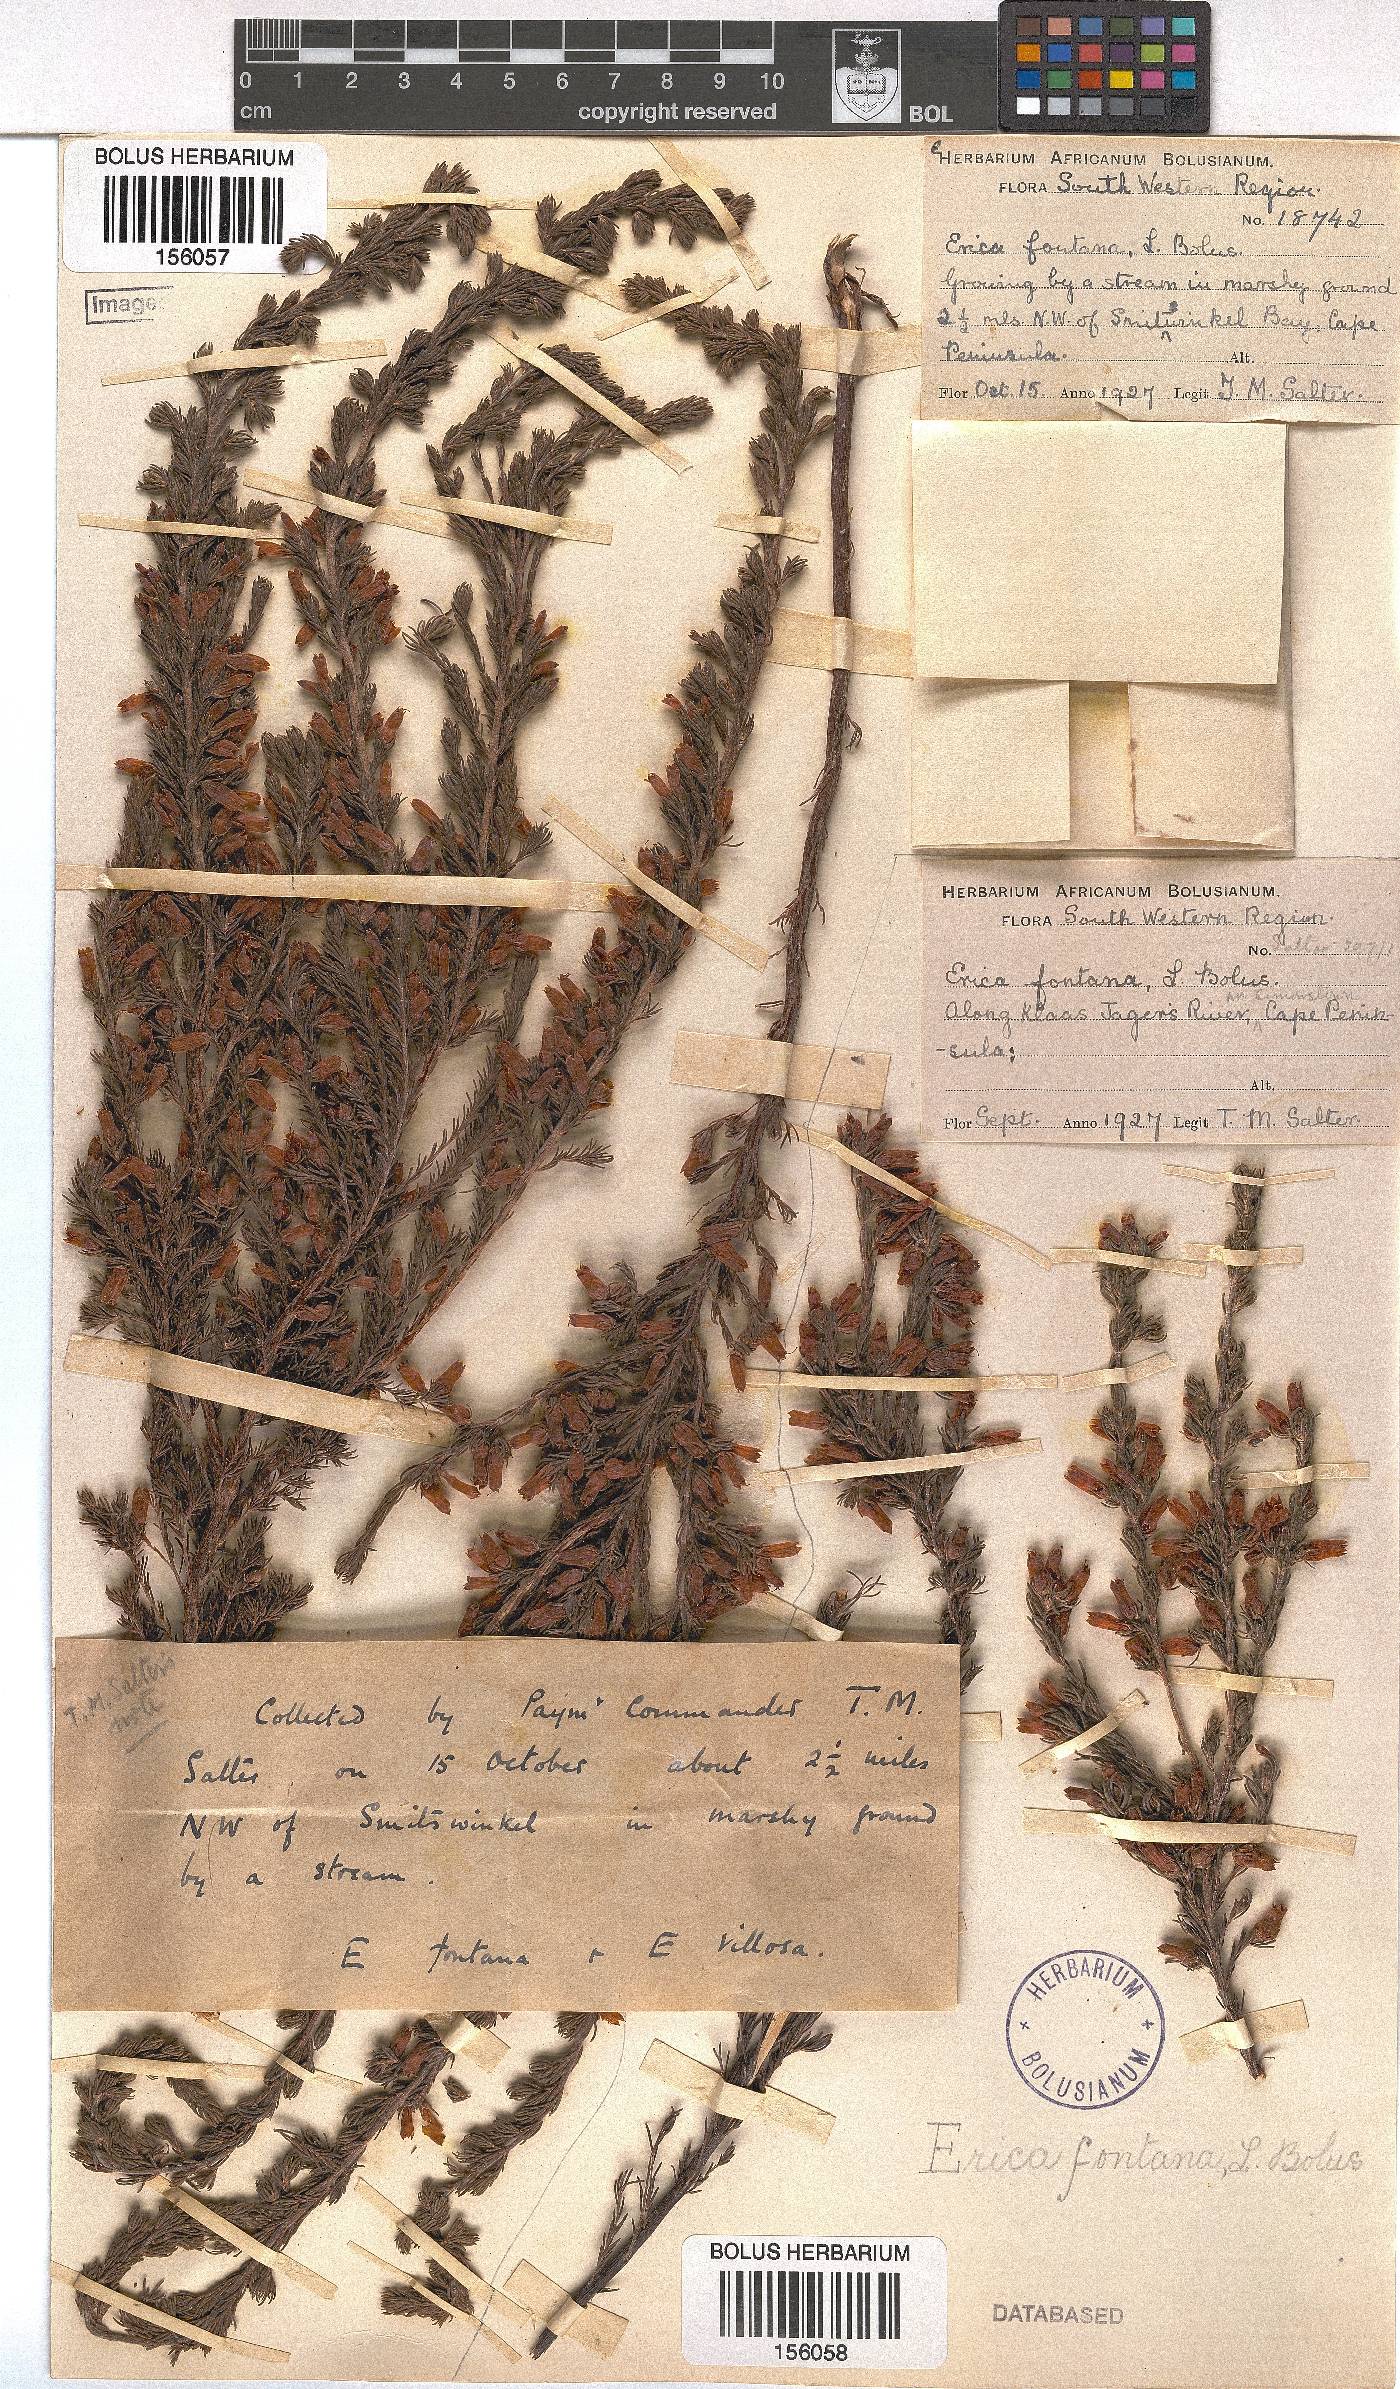 0 1 2 3 4 5 6 7 8 9 10
cm
copyright reserved
BOL
BOLUS HERBARIUM
156057
Image
HERBARIUM AFRICANUM BOLUSIANUM.
FLORA South Western Region.
No. 18742
Erica fontana, L. Bolus.
Growing by a stream in marshy ground
2½ mls NW. of Smitswinkel Bay, Cape
Peninsula. Alt.
Flor Oct. 15 Anno 1927 Legit T. M. Salter.
HERBARIUM AFRICANUM BOLUSIANUM.
FLORA South Western Region.
No. Salter
Erica fontana, L. Bolus.
Along Klaas Jagers River, Cape Penin-
-sula;
Alt.
Flor Sept. Anno 1927 Legit T. M. Salter.
T. M. Salter's
note
Collected by Paymr Commander T. M.
Salter on 15 October about 2½ miles
NW of Smitswinkel in marshy ground
by a stream.
E fontana + E villosa.
HERBARIUM
BOLUSIANUM
Erica fontana, L. Bolus
BOLUS HERBARIUM
156058
DATABASED